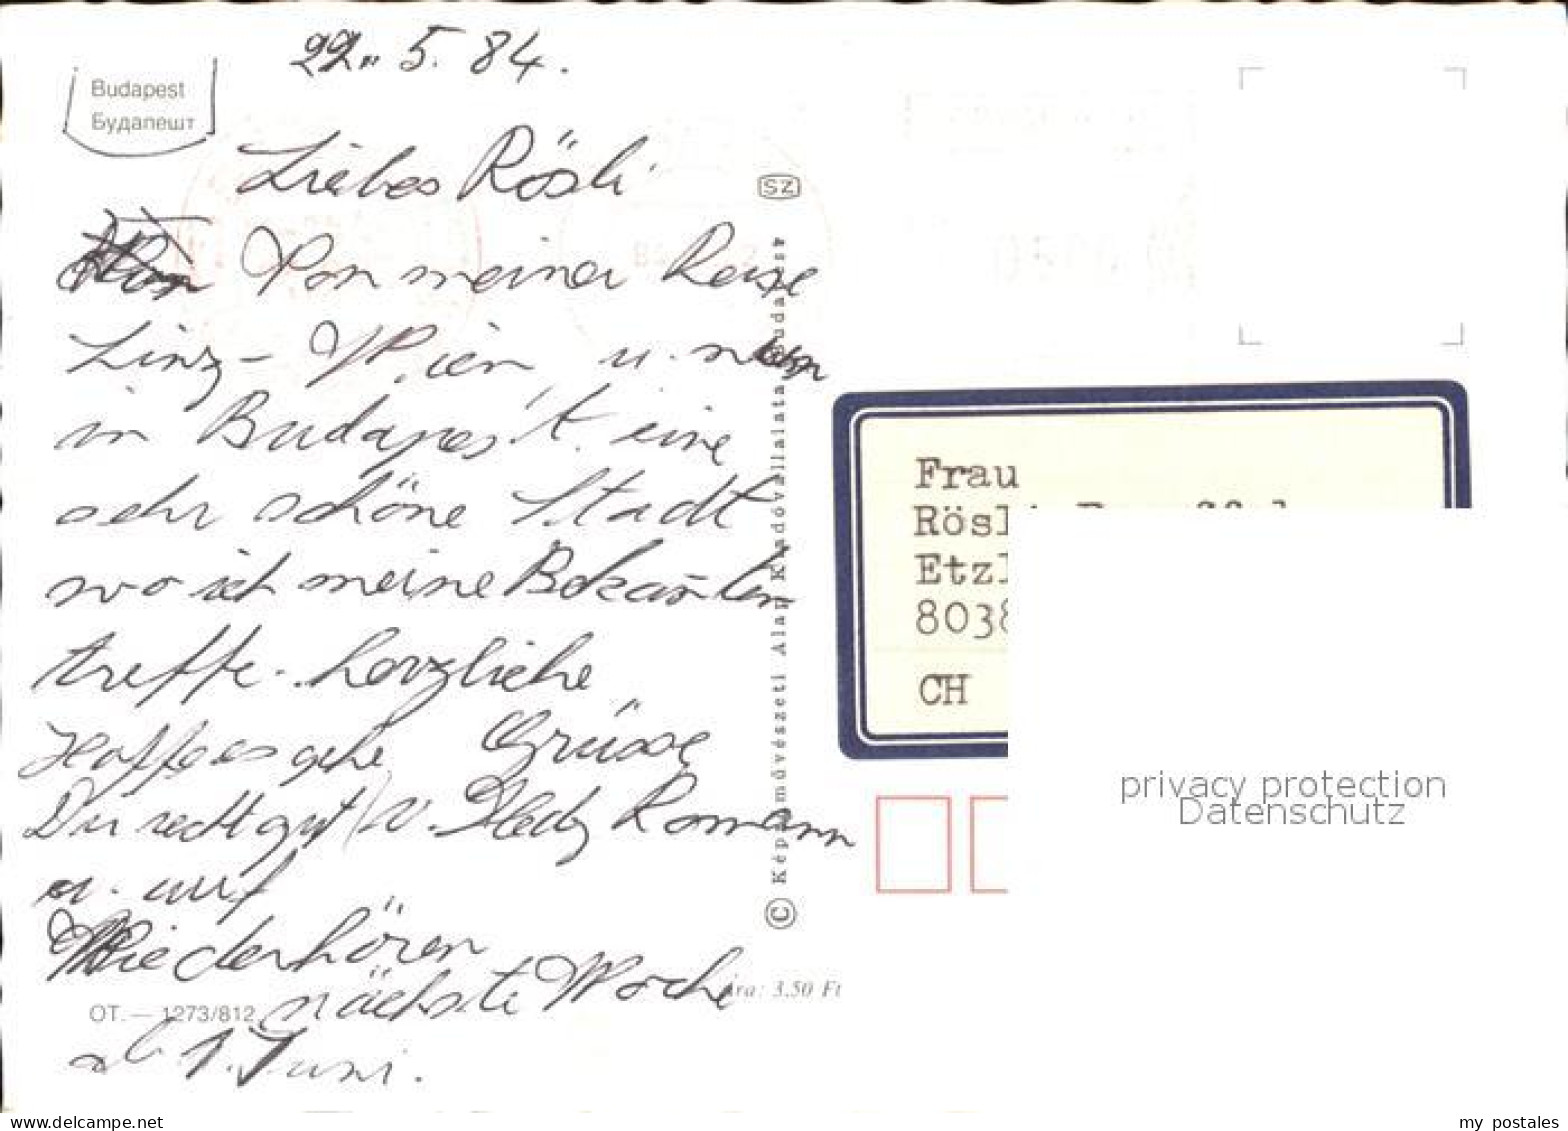 22. 5. 84.
Budapest
Будапешт
Liebes Rösli
Von meiner Reise
Linz - Wien, u. nun
in Budapest. eine
sehr schöne Stadt
wo ich meine
treffe. herzliche
Hoffe es gehe Grüsse
Du recht gut v. Romann
u. auf
Wiederhören
nächste Woche
1. Juni.
OT. — 1273/812
SZ
© Képzőművészeti Alap Kiadóvállalata, Budapest
Ára: 3,50 Ft
Frau
Etzl
8038
CH
privacy protection
Datenschutz
www.delcampe.net
my_postales